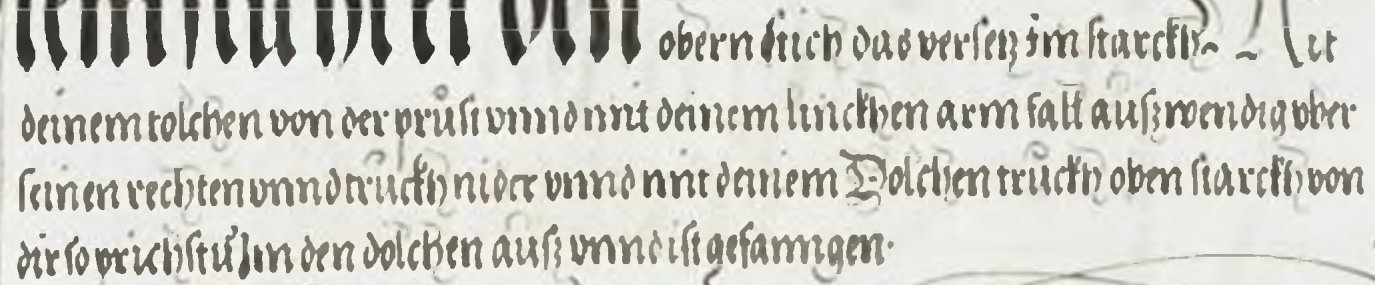 den obern stich das versetz im starckh Mit
deinem tolchen von der prüst vnnd mit deinem linckhen arm fall außwendig vber
seinen rechten vnnd truckh nider vnnd mit deinem Dolchen truckh oben starckh von
dir so prichstu Im den dolchen auß vnnd ist gefanngen·